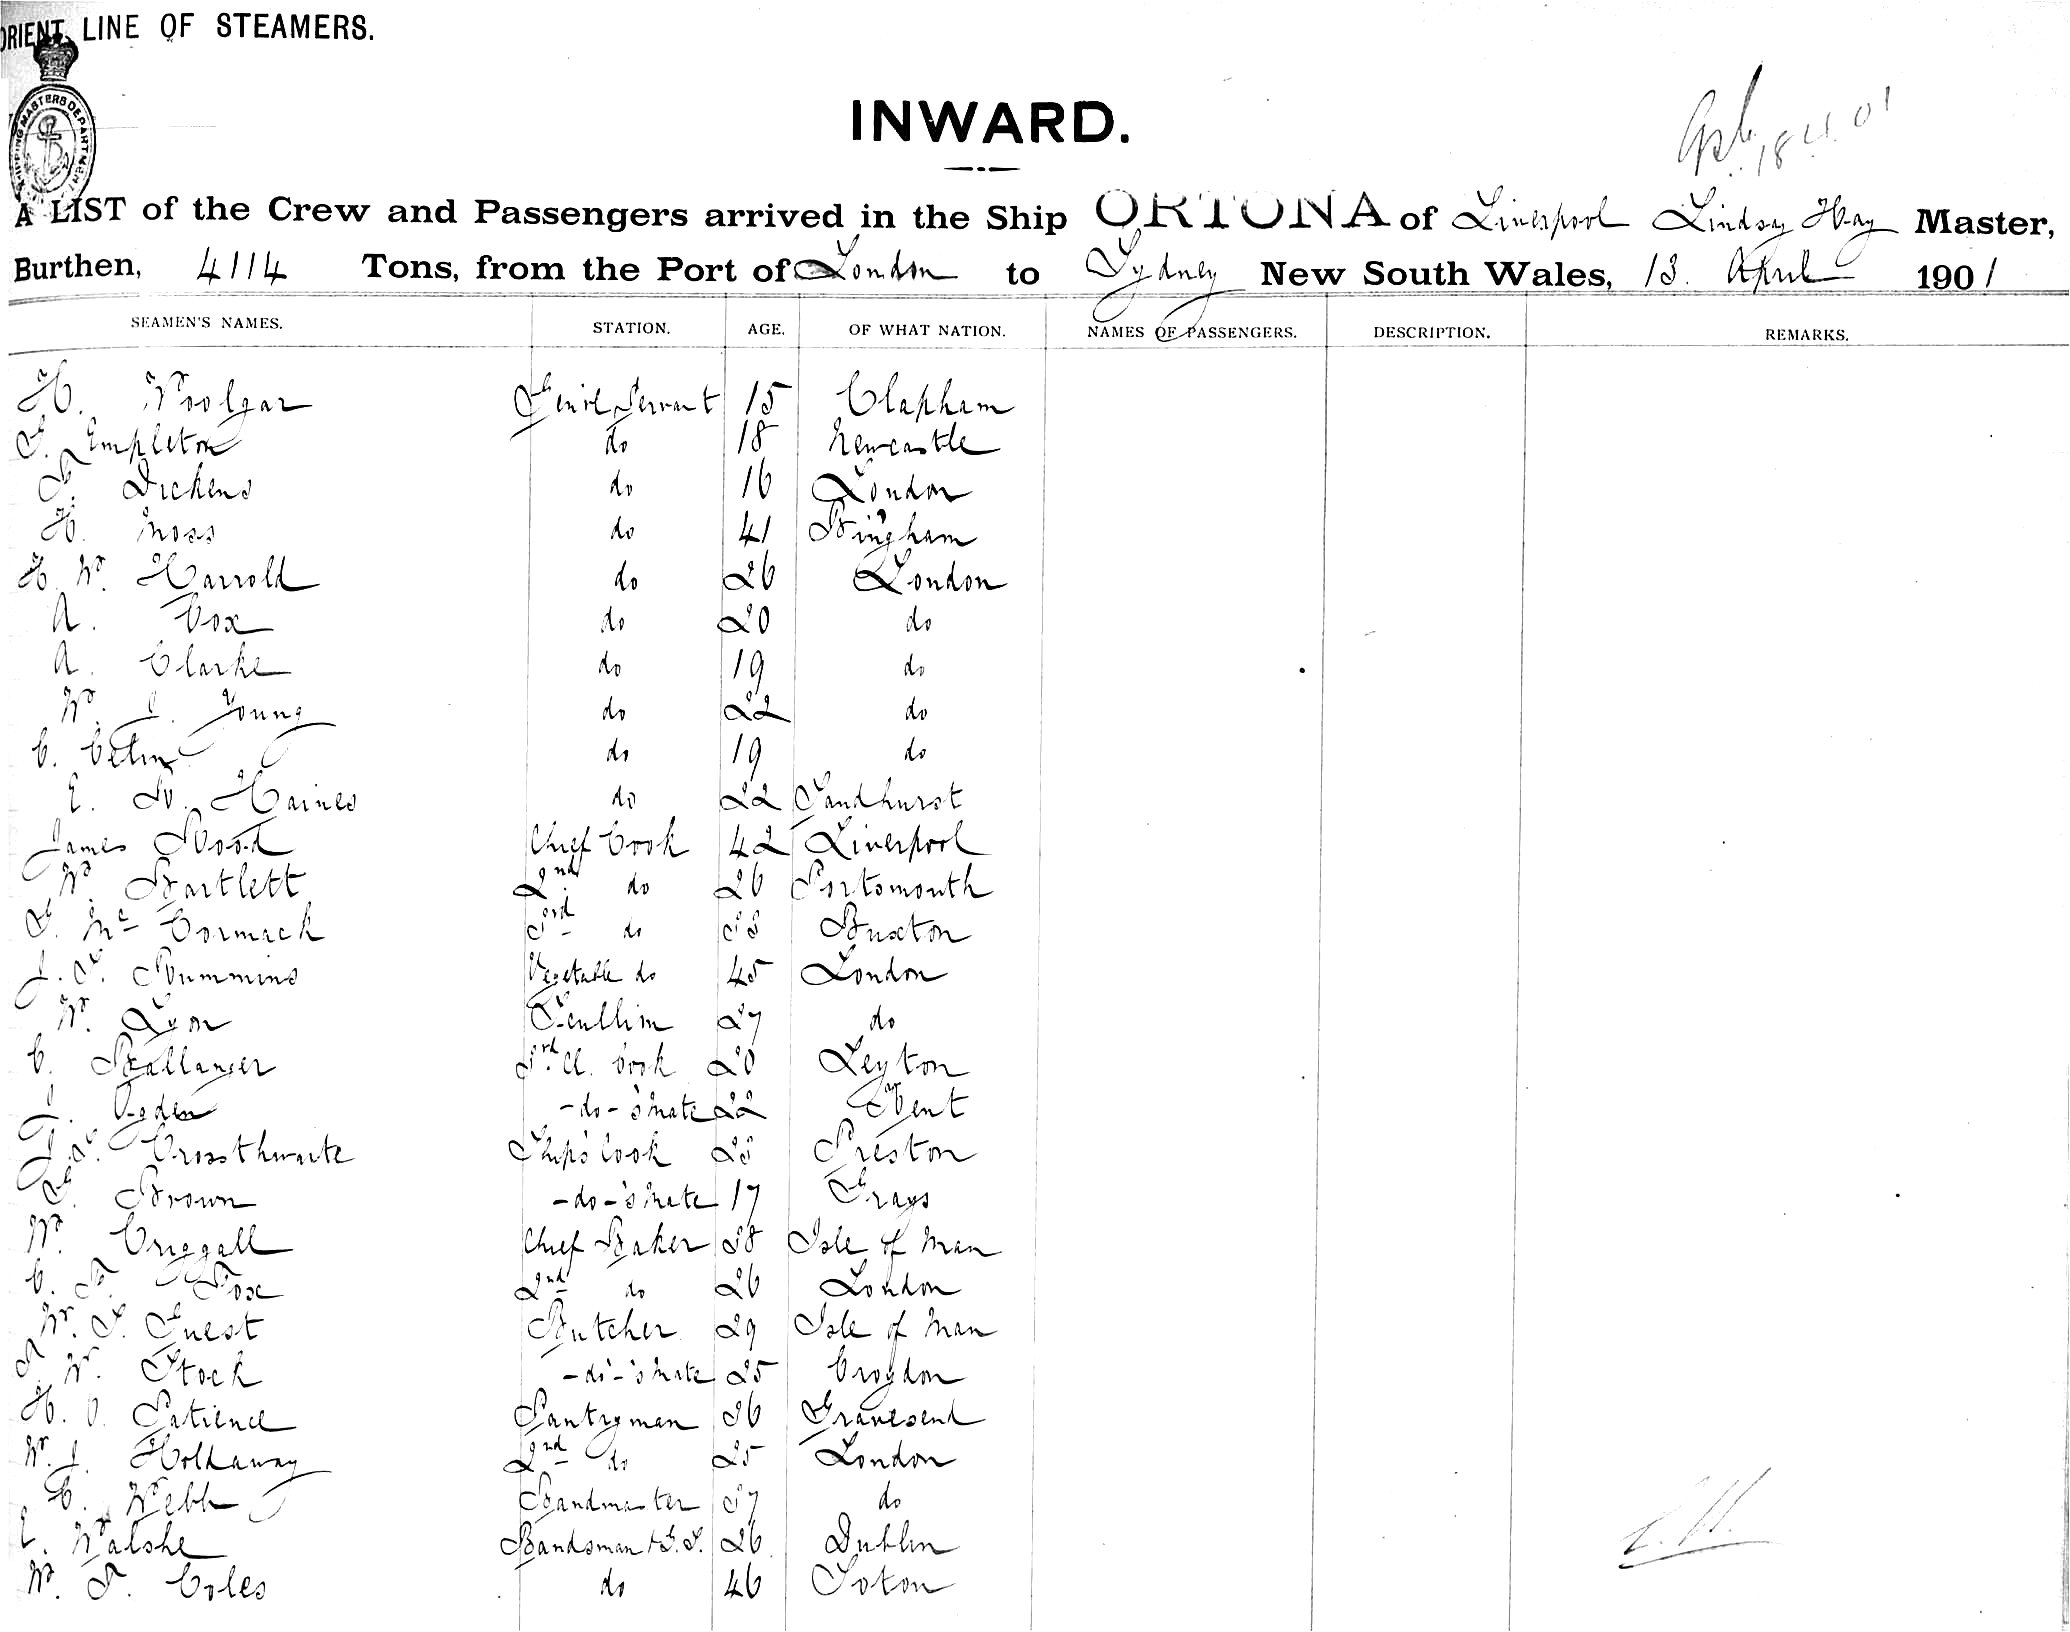 ORIENT LINE OF STEAMERS.
SHIPPING MASTERS DEPARTMENT
INWARD.
18 4 01
A LIST of the Crew and Passengers arrived in the Ship ORTONA of Liverpool Lindsay Hay Master,
Burthen, 4114 Tons, from the Port of London to Sydney New South Wales, 13. April 1901
SEAMEN'S NAMES. STATION. AGE. OF WHAT NATION. NAMES OF PASSENGERS. DESCRIPTION. REMARKS.
H. Woolgar Genrl Servant 15 Clapham
G. Empleton do 18 Newcastle
F. Dickens do 16 London
H. Moss do 41 Bingham
H. W. Harrold do 26 London
A. Cox do 20 do
A. Clarke do 19 do
W. J. Young do 22 do
C. do 19 do
E. W. Haines do 22 Sandhurst
James Wood Chief Cook 42 Liverpool
W. Bartlett 2nd do 26 Portsmouth
G. Mc Cormack 3rd do 33 Buxton
J. S. Bummins Vegetable do 45 London
W. Lyon Scullim 27 do
C. Ballanger 3rd Cl. Cook 20 Leyton
J. Ogden -do-'s Mate 22 Kent
J. S. Crossthwaite Ship's Cook 23 Preston
G. Brown -do-'s Mate 17 Grays
W. Criggall Chief Baker 38 Isle of Man
C. F. Fox 2nd do 26 London
W. S. Guest Butcher 29 Isle of Man
A. W. Stock -do-'s Mate 25 Croydon
H. O. Patience Pantryman 36 Gravesend
W. J. Holdaway 2nd do 25 London
C. Webb Bandmaster 37 do
E. Walshe Bandsman & G.S. 26 Dublin
W. A. Coles do 46 Soton